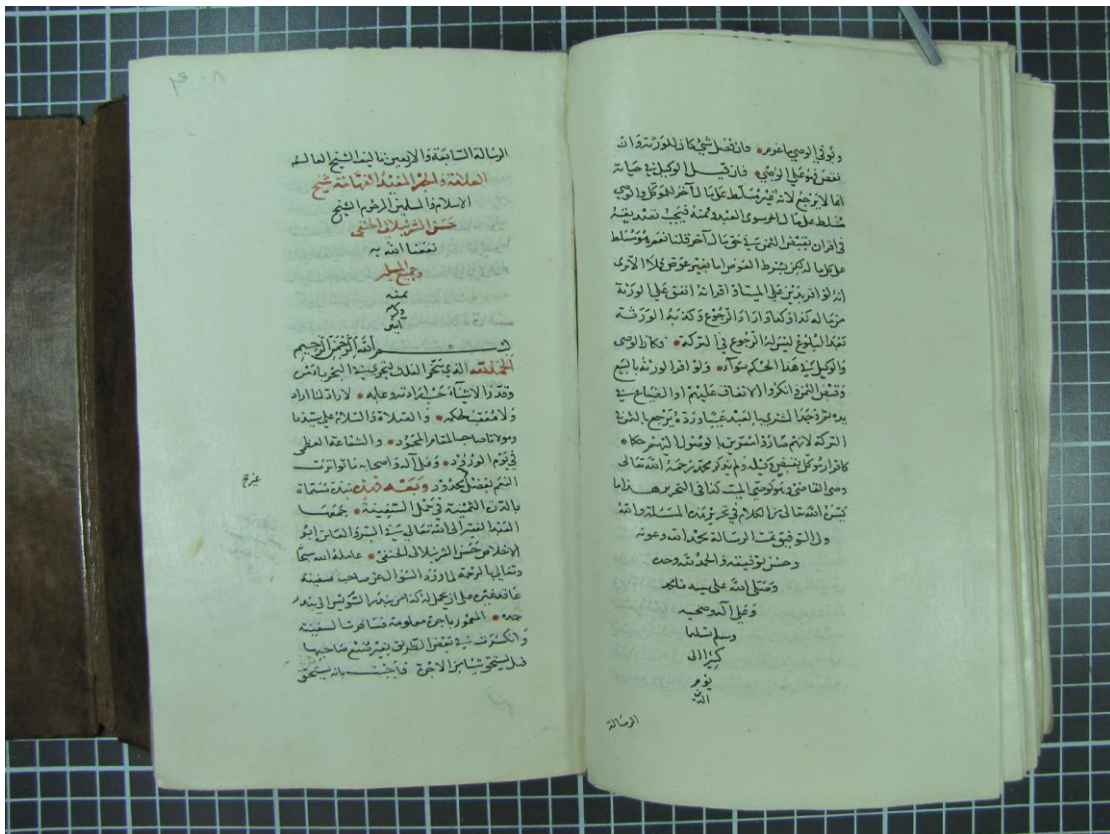 ويوفي الوصي ما غرم فان فضل شي كان للورثة وان
نقص فهو علي الوصي فان قيل الوكيل في حياته
انما لا يرجع لانه غير مسلط علي مال آخر للموكل والوصي
مسلط علي مال آخر سوى العبد وثمنه فيجب تصديقه
في اقراره بقبض الثمن في حق مال آخر قلنا نعم هو مسلط
علي كل ماله لكن بشرط العوض اما بغير عوض فلا الا ترى
انه لو اقر بدين علي الميت او اقر انه انفق علي الورثة
من ماله كذا وكذا واراد الرجوع وكذبه الورثة
بعد البلوغ ليس له الرجوع في التركة فكان الوصي
والوكيل في هذا الحكم سوآء ولو اقر الورثة بالبيع
وقبض الثمن وانكروا الانفاق عليهم او الضياع في
يده ثم وجد المشتري بالعبد عيبا ورده يرجع بالثمن في
التركة لانهم صاروا مقرين بوصول الثمن حكما
كاقرار موكل بقبض وكيله ولم يذكر محمد رحمه الله تعالى
وصي القاضي وهو كوصي الميت كذا في التحرير هذا ما
يسره الله تعالى من الكلام في تحرير هذه المسئلة والله
ولي التوفيق تمت الرسالة بحمد الله وعونه
وحسن توفيقه والحمد لله وحده
وصلى الله على سيدنا محمد
وعلى آله وصحبه
وسلم تسليما
كثيرا الى
يوم
الدين
الرسالة
الرسالة السابعة والاربعين تاليف الشيخ العالم
العلامة والحبر المفيد الفهامة شيخ
الاسلام والمسلمين المرحوم الشيخ
حسن الشرنبلالي الحنفي
نفعنا الله به
وجميع المسلمين
بمنه
وكرمه
امين
بسم الله الرحمن الرحيم
الحمد لله الذي سخر الفلك لتجري في البحر بامره
وقدر الاشيآء حسب ارادته وعلمه لا راد لما اراد
ولا معقب لحكمه والصلاة والسلام علي سيدنا
ومولانا صاحب المقام المحمود والشفاعة العظمى
في يوم الورود وعلى آله واصحابه ما تواترت
النعم بفضل المحدود وبعد فهذه نبذة مسماة
بالدرة الثمينة في حمل السفينة جمعها
العبد الفقير الى الله تعالى في السر والعلن ابو
الاخلاص حسن الشرنبلالي الحنفي عامله الله سبحانه
وتعالى بالرحمة لما ورد السؤال عن صاحب سفينة
عاقد غيره على ان يحمل له كذا من بندر السويس الى بندر
جده المعمور باجرة معلومة فسافرت السفينة
وانكسرت في بعض الطريق بغير صنع صاحبها
فهل يستحق شيا من الاجرة فاجبت بانه يستحق